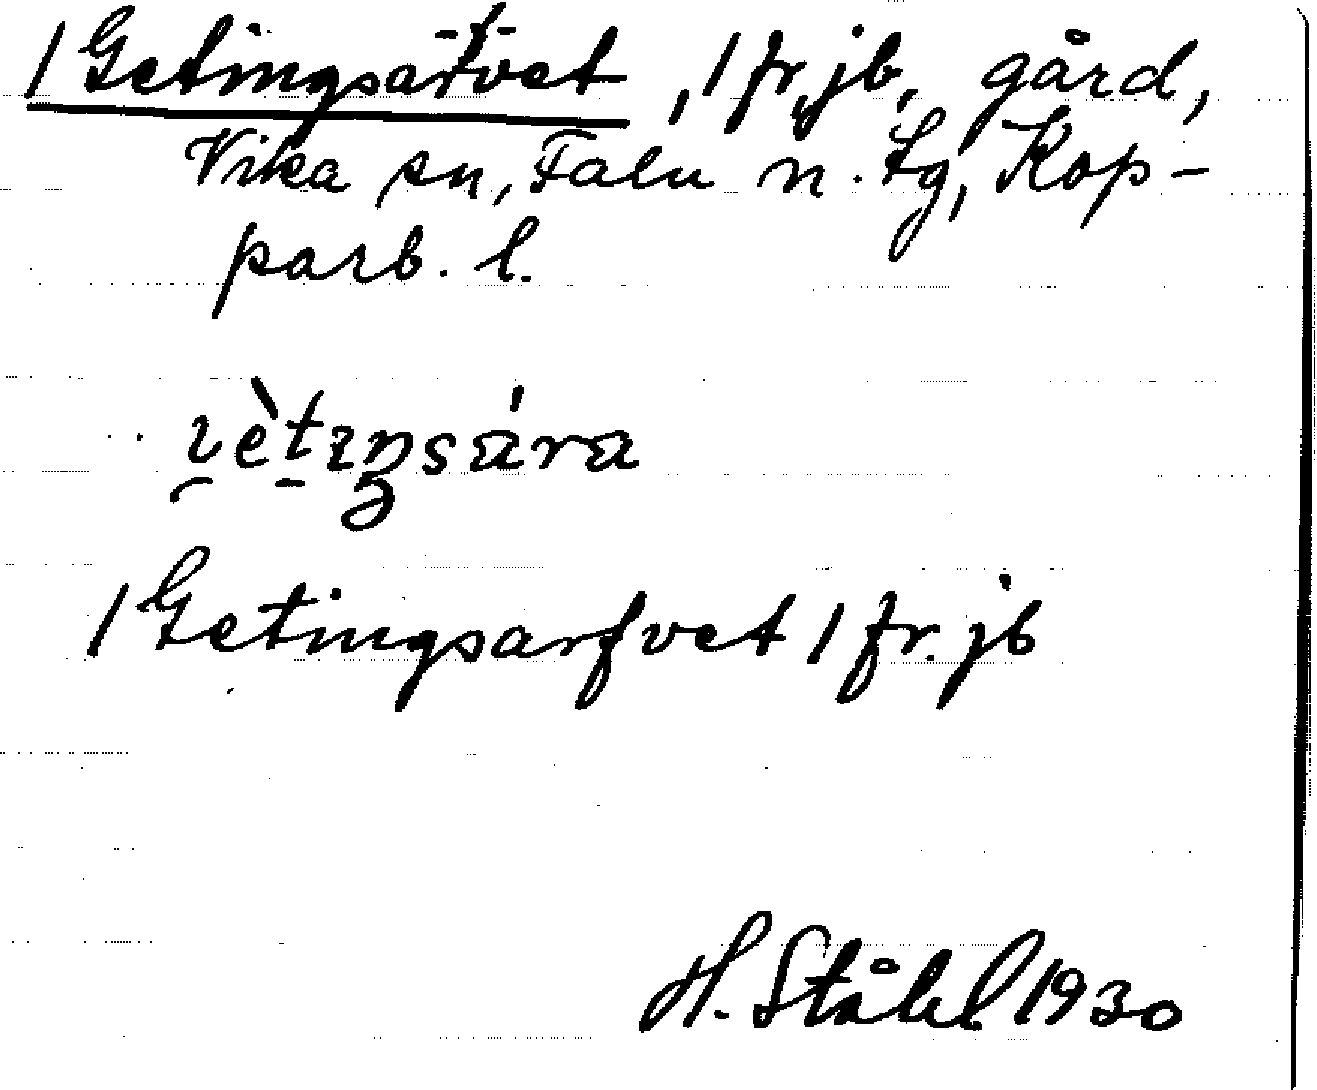 / Getingsarvet, / fr, jb, gård,
Vika sn, Falu n. tg, Kop-
parb. l.
ı̯èt̠ıŋsára
/ Getingsarfvet / fr. jb
H. Ståhl 1930